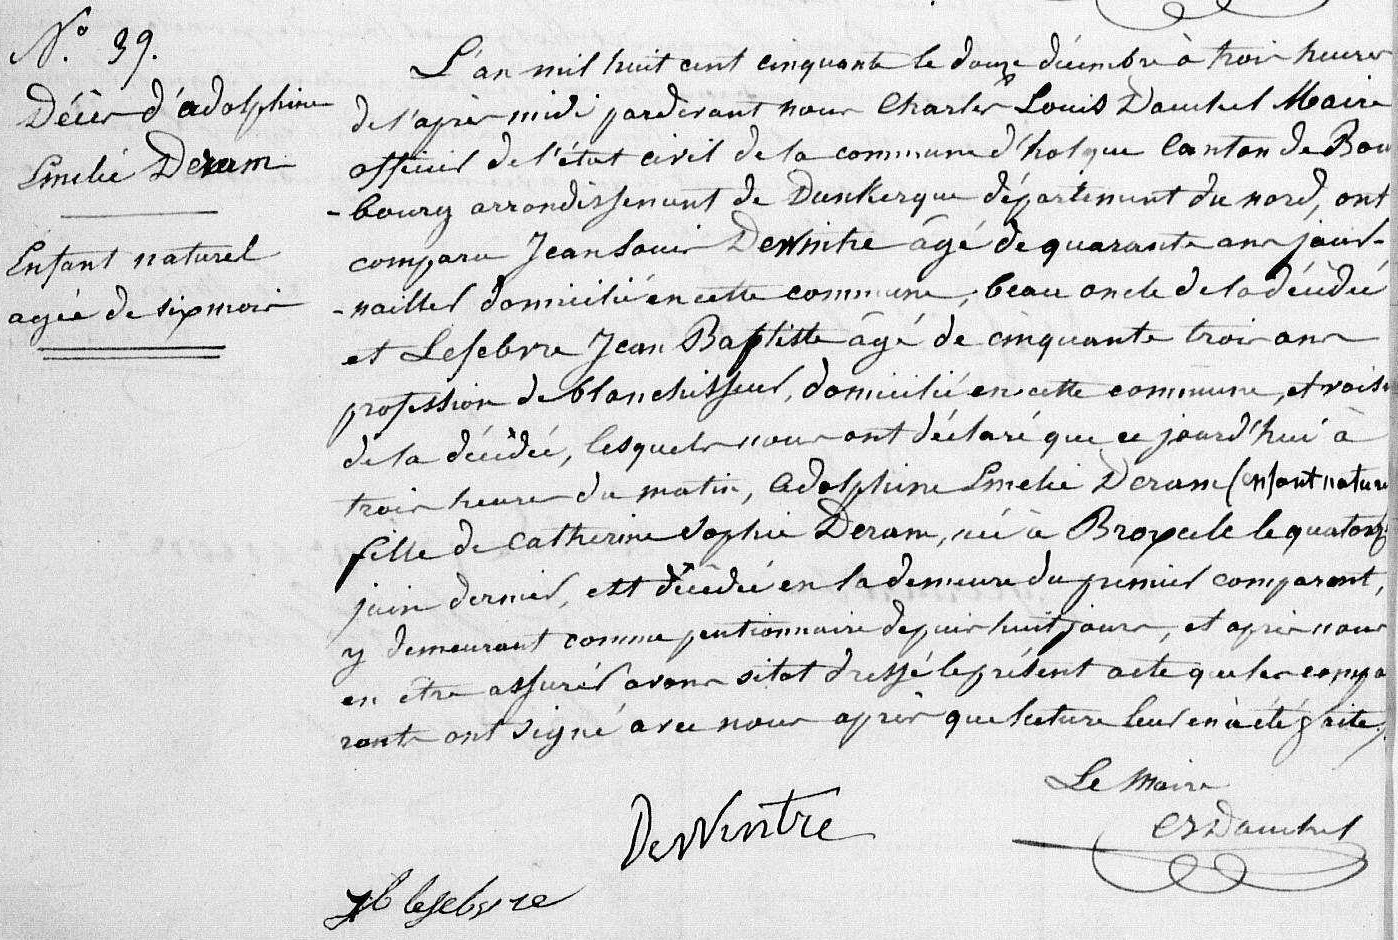 N.° 39.
Décès d'adolphine
Emelie Deram
Enfant naturel
agée de six mois
L'an mil huit cent cinquante le douze décembre à trois heures
de l'après midi pardevant nous Charles Louis Dauchel Maire
officier de l'état civil de la commune d'holque Canton de Bour
-bourg arrondissement de Dunkerque département du nord, ont
comparu Jean Louis Dewintre âgé de quarante ans jour-
-nallier domicilié en cette commune, beau oncle de la décédée
et Lefebvre Jean Baptiste âgé de cinquante trois ans
profession de blanchisseur, domicilié en cette commune, et voisin
de la décédée, lesquels nous ont déclaré que ce jourd'hui à
trois heures du matin, Adolphine Emelie Deram (enfant nature
fille de Catherine Sophie Deram, née à Broxeele le quatorze
juin dernier, est décédée en la demeure du premier comparant,
y demeurant comme pentionnaire depuis huit jours, et après nous
en être assurés avons sitot dressé le présent acte que les compa
rants ont signé avec nous après que lecture leur en à été faite.
Le Maire
Dauchel
DeWintre
jb lefebvre